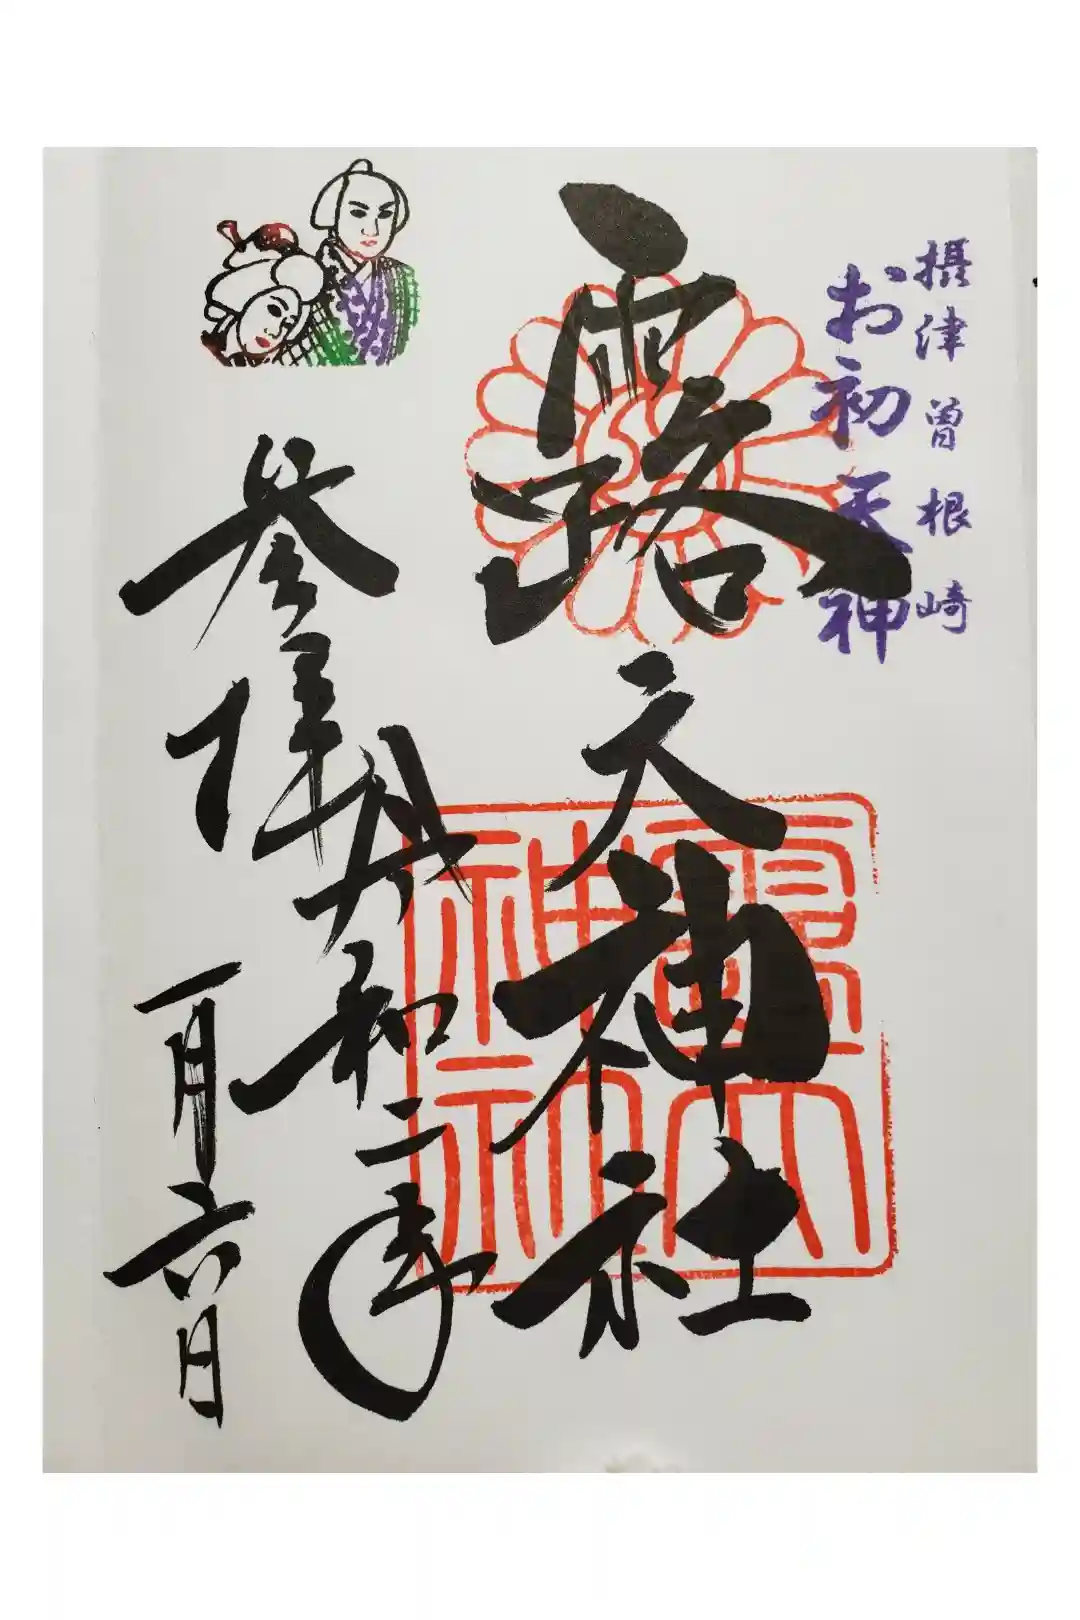 摂津曽根崎
お初天神
露天神社
参拝
令和二年
一月六日
露天
神社